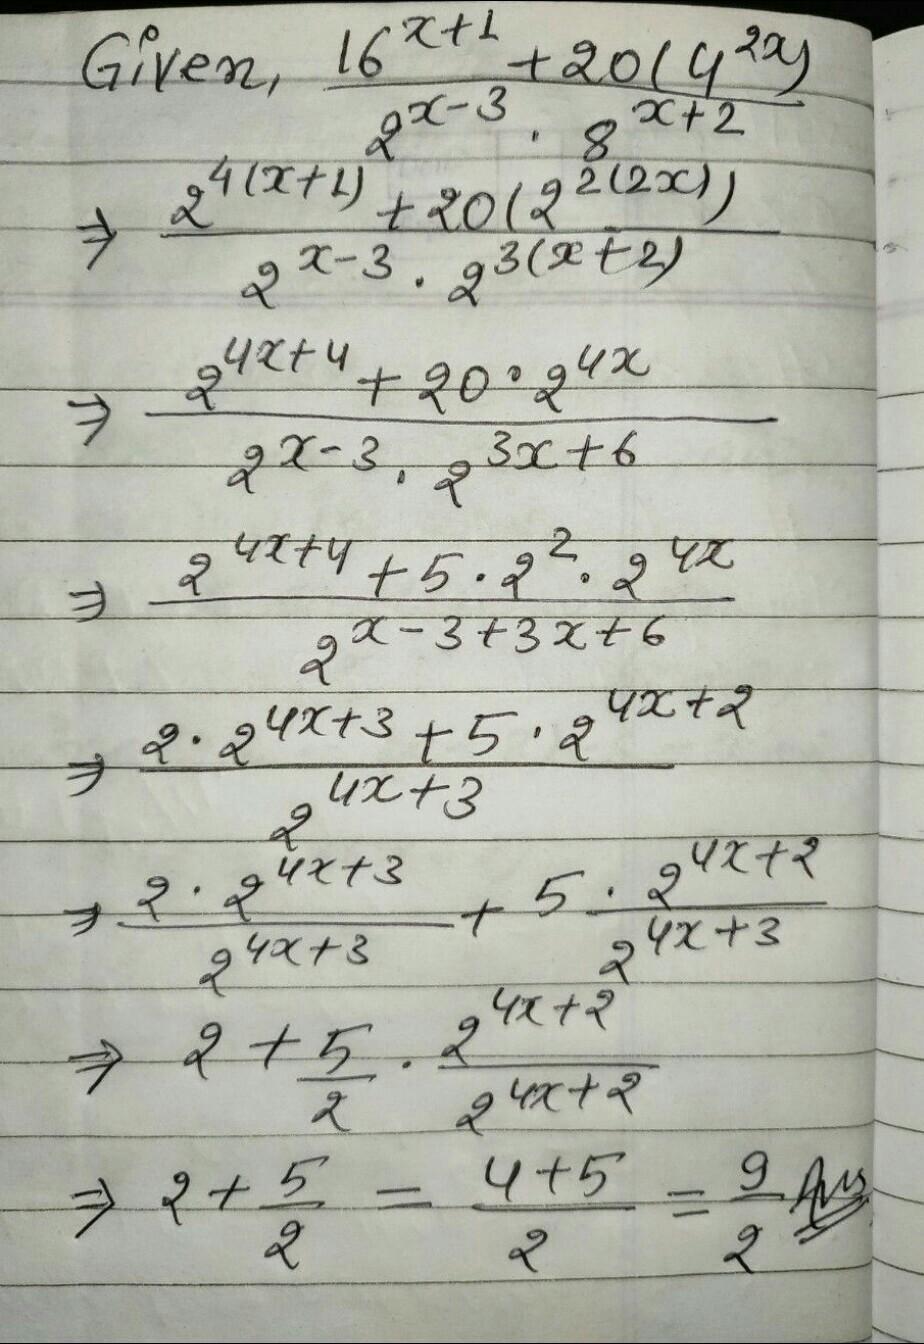 Given, (16^(x+1) + 20(4^(2x)))/(2^(x-3) · 8^(x+2))
⇒ (2^(4(x+1)) + 20(2^(2(2x))))/(2^(x-3) · 2^(3(x+2)))
⇒ (2^(4x+4) + 20·2^(4x))/(2^(x-3) · 2^(3x+6))
⇒ (2^(4x+4) + 5·2^2·2^(4x))/(2^(x-3+3x+6))
⇒ (2·2^(4x+3) + 5·2^(4x+2))/(2^(4x+3))
⇒ (2·2^(4x+3))/(2^(4x+3)) + 5·(2^(4x+2))/(2^(4x+3))
⇒ 2 + 5/2 · (2^(4x+2))/(2^(4x+2))
⇒ 2 + 5/2 = (4+5)/2 = 9/2 Ans